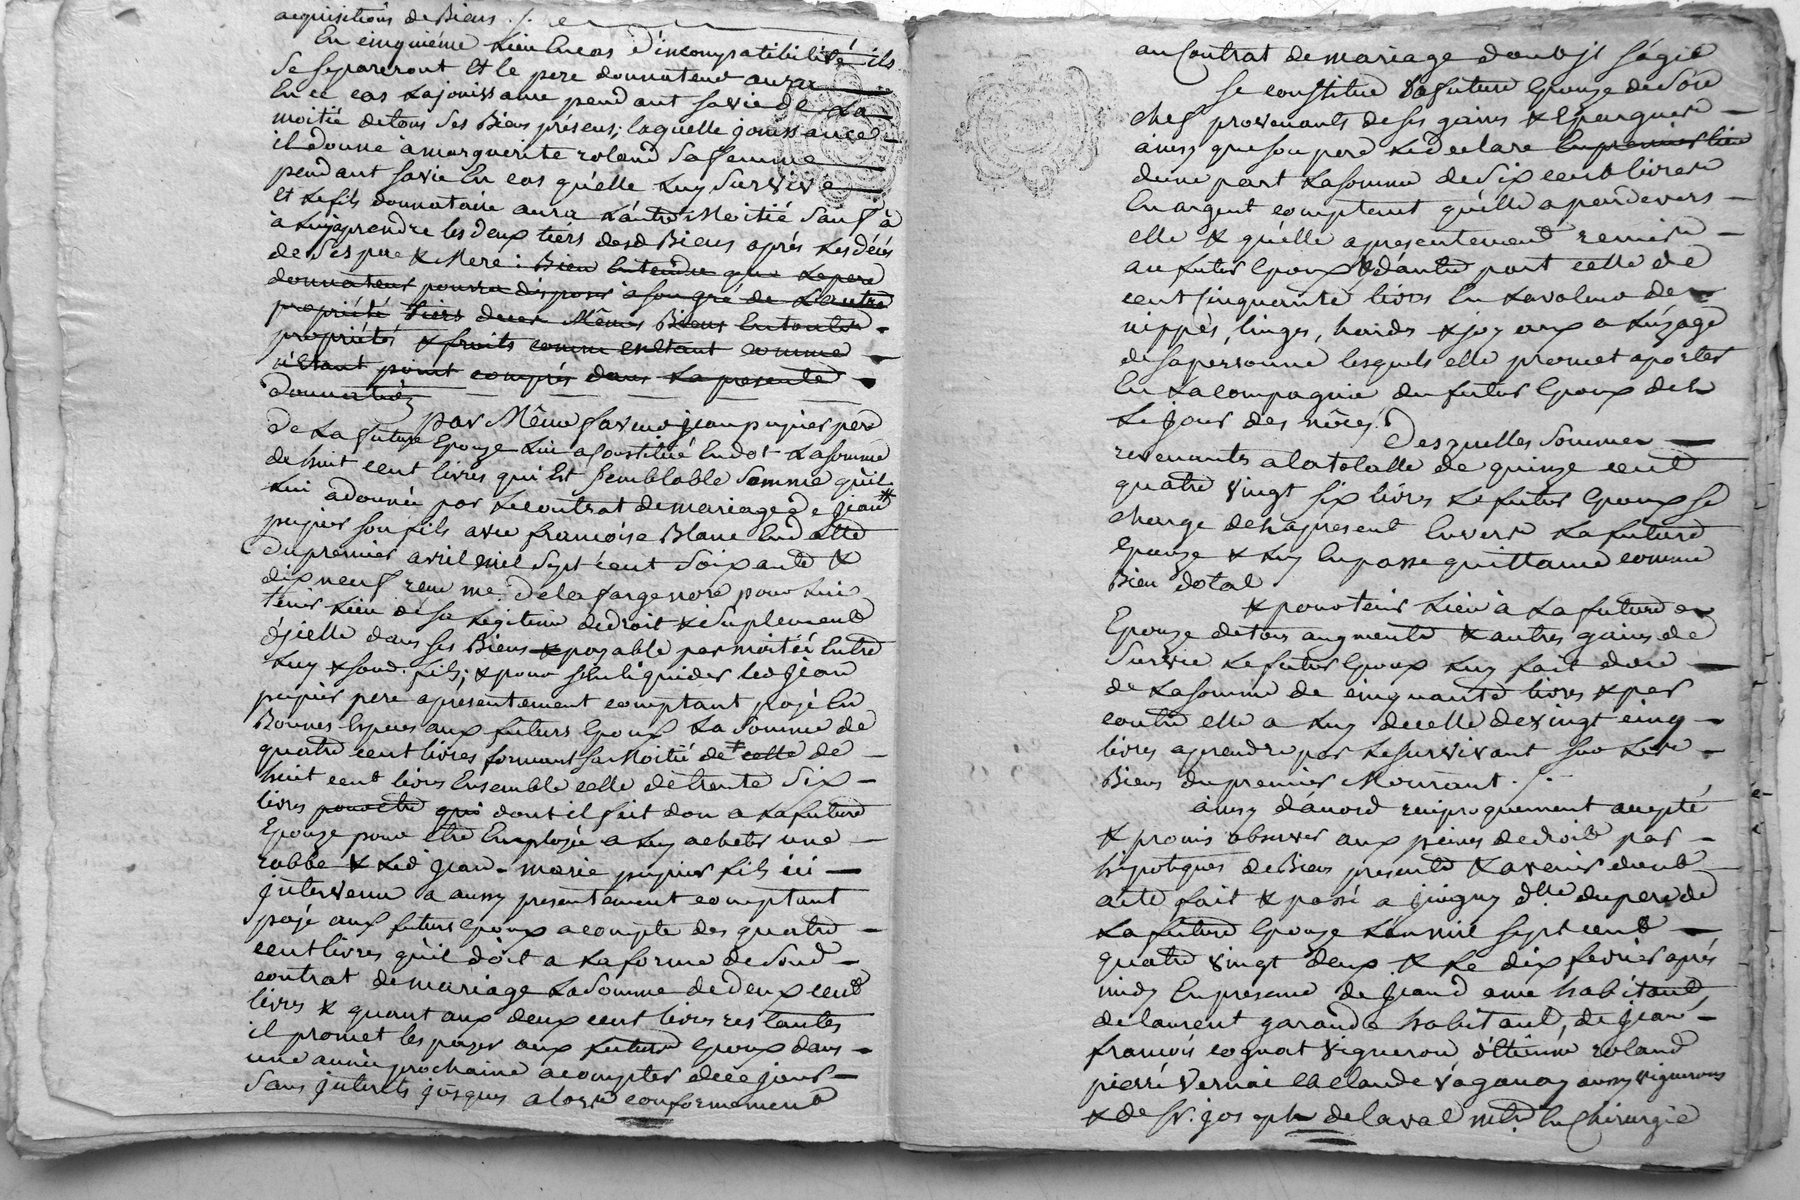 acquisitions de Biens ./.
En cinquiéme Lieu En cas d'incompatibilité ils
se separeront Et le pere donnateur aura
En ce cas La jouissance pendant sa vie de La
moitié de tous ses Biens présens; laquelle jouissance
il donne a marguerite roland sa femme
pendant sa vie En cas quélle Luy survive
Et Le fils donnataire aura L'autre Moitié sauf à
à Luy aprendre les deux tiers desd Biens aprés Les décés
de ses pere & Mere : Bien Entendu que Le pere
donnateur pourra disposer a son gré de L'autre
propriété tiers de ces Mêmes Biens En toutte
propriétés & fruits comme Estant comme
n'Etant point comprés dans La presente
donnation
par Même faveur jean pupier pere
de La future Epouze Lui a Constitué En dot La somme
de huit cent livres qui Est semblable somme quil
Lui a donnée par Le contrat de mariage de jean
pupier son fils avec francoise Blanc En datte
du premier avril mil sept cent soixante &
dix neuf recu me. Delafarge nore pour lui
tenir Lieu de sa Legitime de droit & suplement
d'jcelle dans ses Biens & payable par moitié Entre
Luy & soud. fils; & pour s'En liquider led jean
pupier pere a presentement comptant payé En
Bonnes Especes aux futurs Epoux La somme de
quatre cent livres formant sa Moitié de celle de
huit cent livres Ensemble celle de trente six
livres pour etre qui dont il fait don a La future
Epouze pour etre Employé a Luy acheter une
robbe & Led jean-marie pupier fils ici
jntervenu a aussy presentement comptant
payé aux futurs Epoux a compte des quatre
cent livres qu'il doit a La forme de soud
contrat de mariage La somme de deux cent
livres & quant aux deux cent livres restantes
il promet les payer aux futurs Epoux dans
une année prochaine a compter de ce jour
sans jnterets jusques alors conformement
au Contrat de mariage dont jl s'agit
Se constitue La future Epouze de son
chef provenants de ses gains & Epargnes
ainsy que son pere Le declare En premier lieu
d'une part La somme de six cent livres
En argent comptant quélle a pardevers
elle & quélle a presentement remise
au futur Epoux & d'autre part celle de
cent cinquante livres En La valeur de
nippes, linges, hardes & joyaux a L'uzage
de sa personne lesquels elle promet aporter
En La compagnie du futur Epoux des
Le jour des nôces.
Desquelles sommes
revenants a la totalle de quinze cent
quatre vingt six livres Le futur Epoux se
charge des apresent Envers La future
Epouze & Luy En passe quittance comme
Bien dotal
& pour tenir Lieu à La future
Epouze de tous augments & autres gains de
survie Le futur Epoux Luy fait don
de La somme de cinquante livres & par
contre elle a Luy de celle de vingt cinq
livres a prendre par Le survivant sur Les
Biens du premier Mourant ./.
ainsy d'acord reciproquement accepté
& promis observer aux peines de droits par
hipoteques de Biens presents & avenir dont
acte fait & passé a jvigny dlle du pere de
La future Epouze L'an mil sept cent
quatre vingt deux & Le dix fevrier aprés
midy En presence de jean d amé habitant
de laurent garande habitant, de jean
francois cognat vigneron étienne roland
pierre vernai Claude vaganay aussy vignerons
& de Sr. joseph delaval mtre En Chirurgie